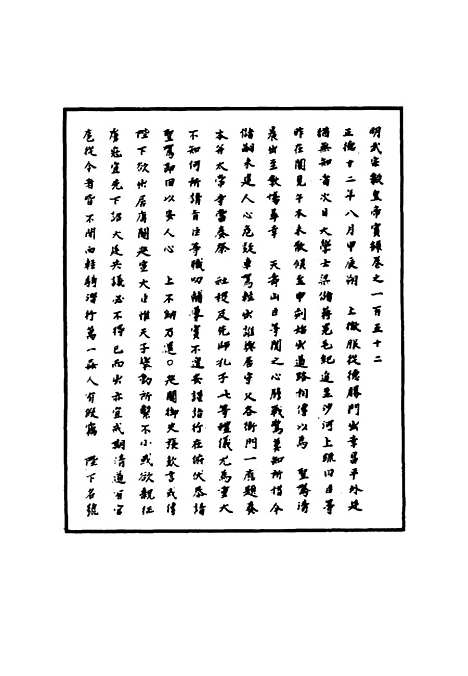 明武宗毅皇帝實錄卷之一百五十二
正德十二年八月甲辰朔　上微服從德勝門出幸昌平外廷
猶無知者次日大學士梁儲蔣冕毛紀追至沙河上疏曰臣等
昨在閣見午本未散傾至申刻始出道路相傳以爲　聖駕清
晨出至教場幸　天壽山臣等聞之心膽戰驚莫知所措今
儲嗣未建人心危疑車駕輕出誰與居守又各衙門一應題奏
本并太常寺當奏祭　社稷及先師孔子七等禮儀尤爲重大
不知何所請旨臣等職切輔導實不遑安謹詣行在俯伏恭請
聖駕即回以安人心　上不納乃還○巡關御史張欽言或傳
陛下欲出居庸關巡宣大臣惟天子舉動所繫不小或欲親征
虜寇宜先下詔大廷共議必不得已而出亦宜戒期清道百官
扈從今者皆不聞而輕騎潛行萬一奸人有假竊　陛下名號